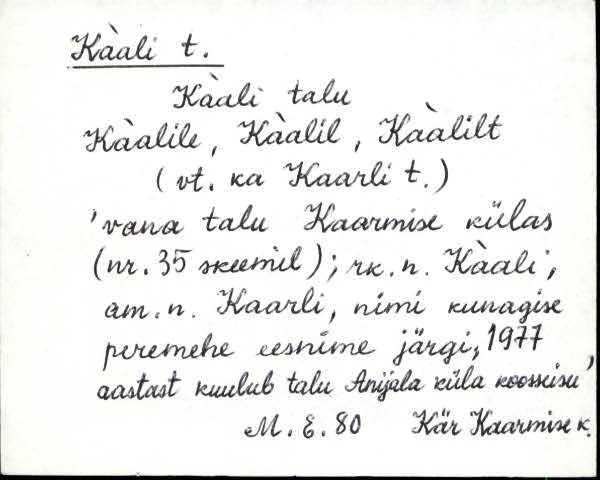 Kàali t.
Kàali talu
Kàalile, Kàalil, Kàalilt
(vt. ka Kaarli t.)
'vana talu Kaarmise külas
(nr. 35 skeemil); rk. n. Kàali,
am. n. Kaarli, nimi kunagise
peremehe eesnime järgi, 1977
aastast kuulub talu Anijala küla koosseisu'
M. E. 80 Kär Kaarmise k.